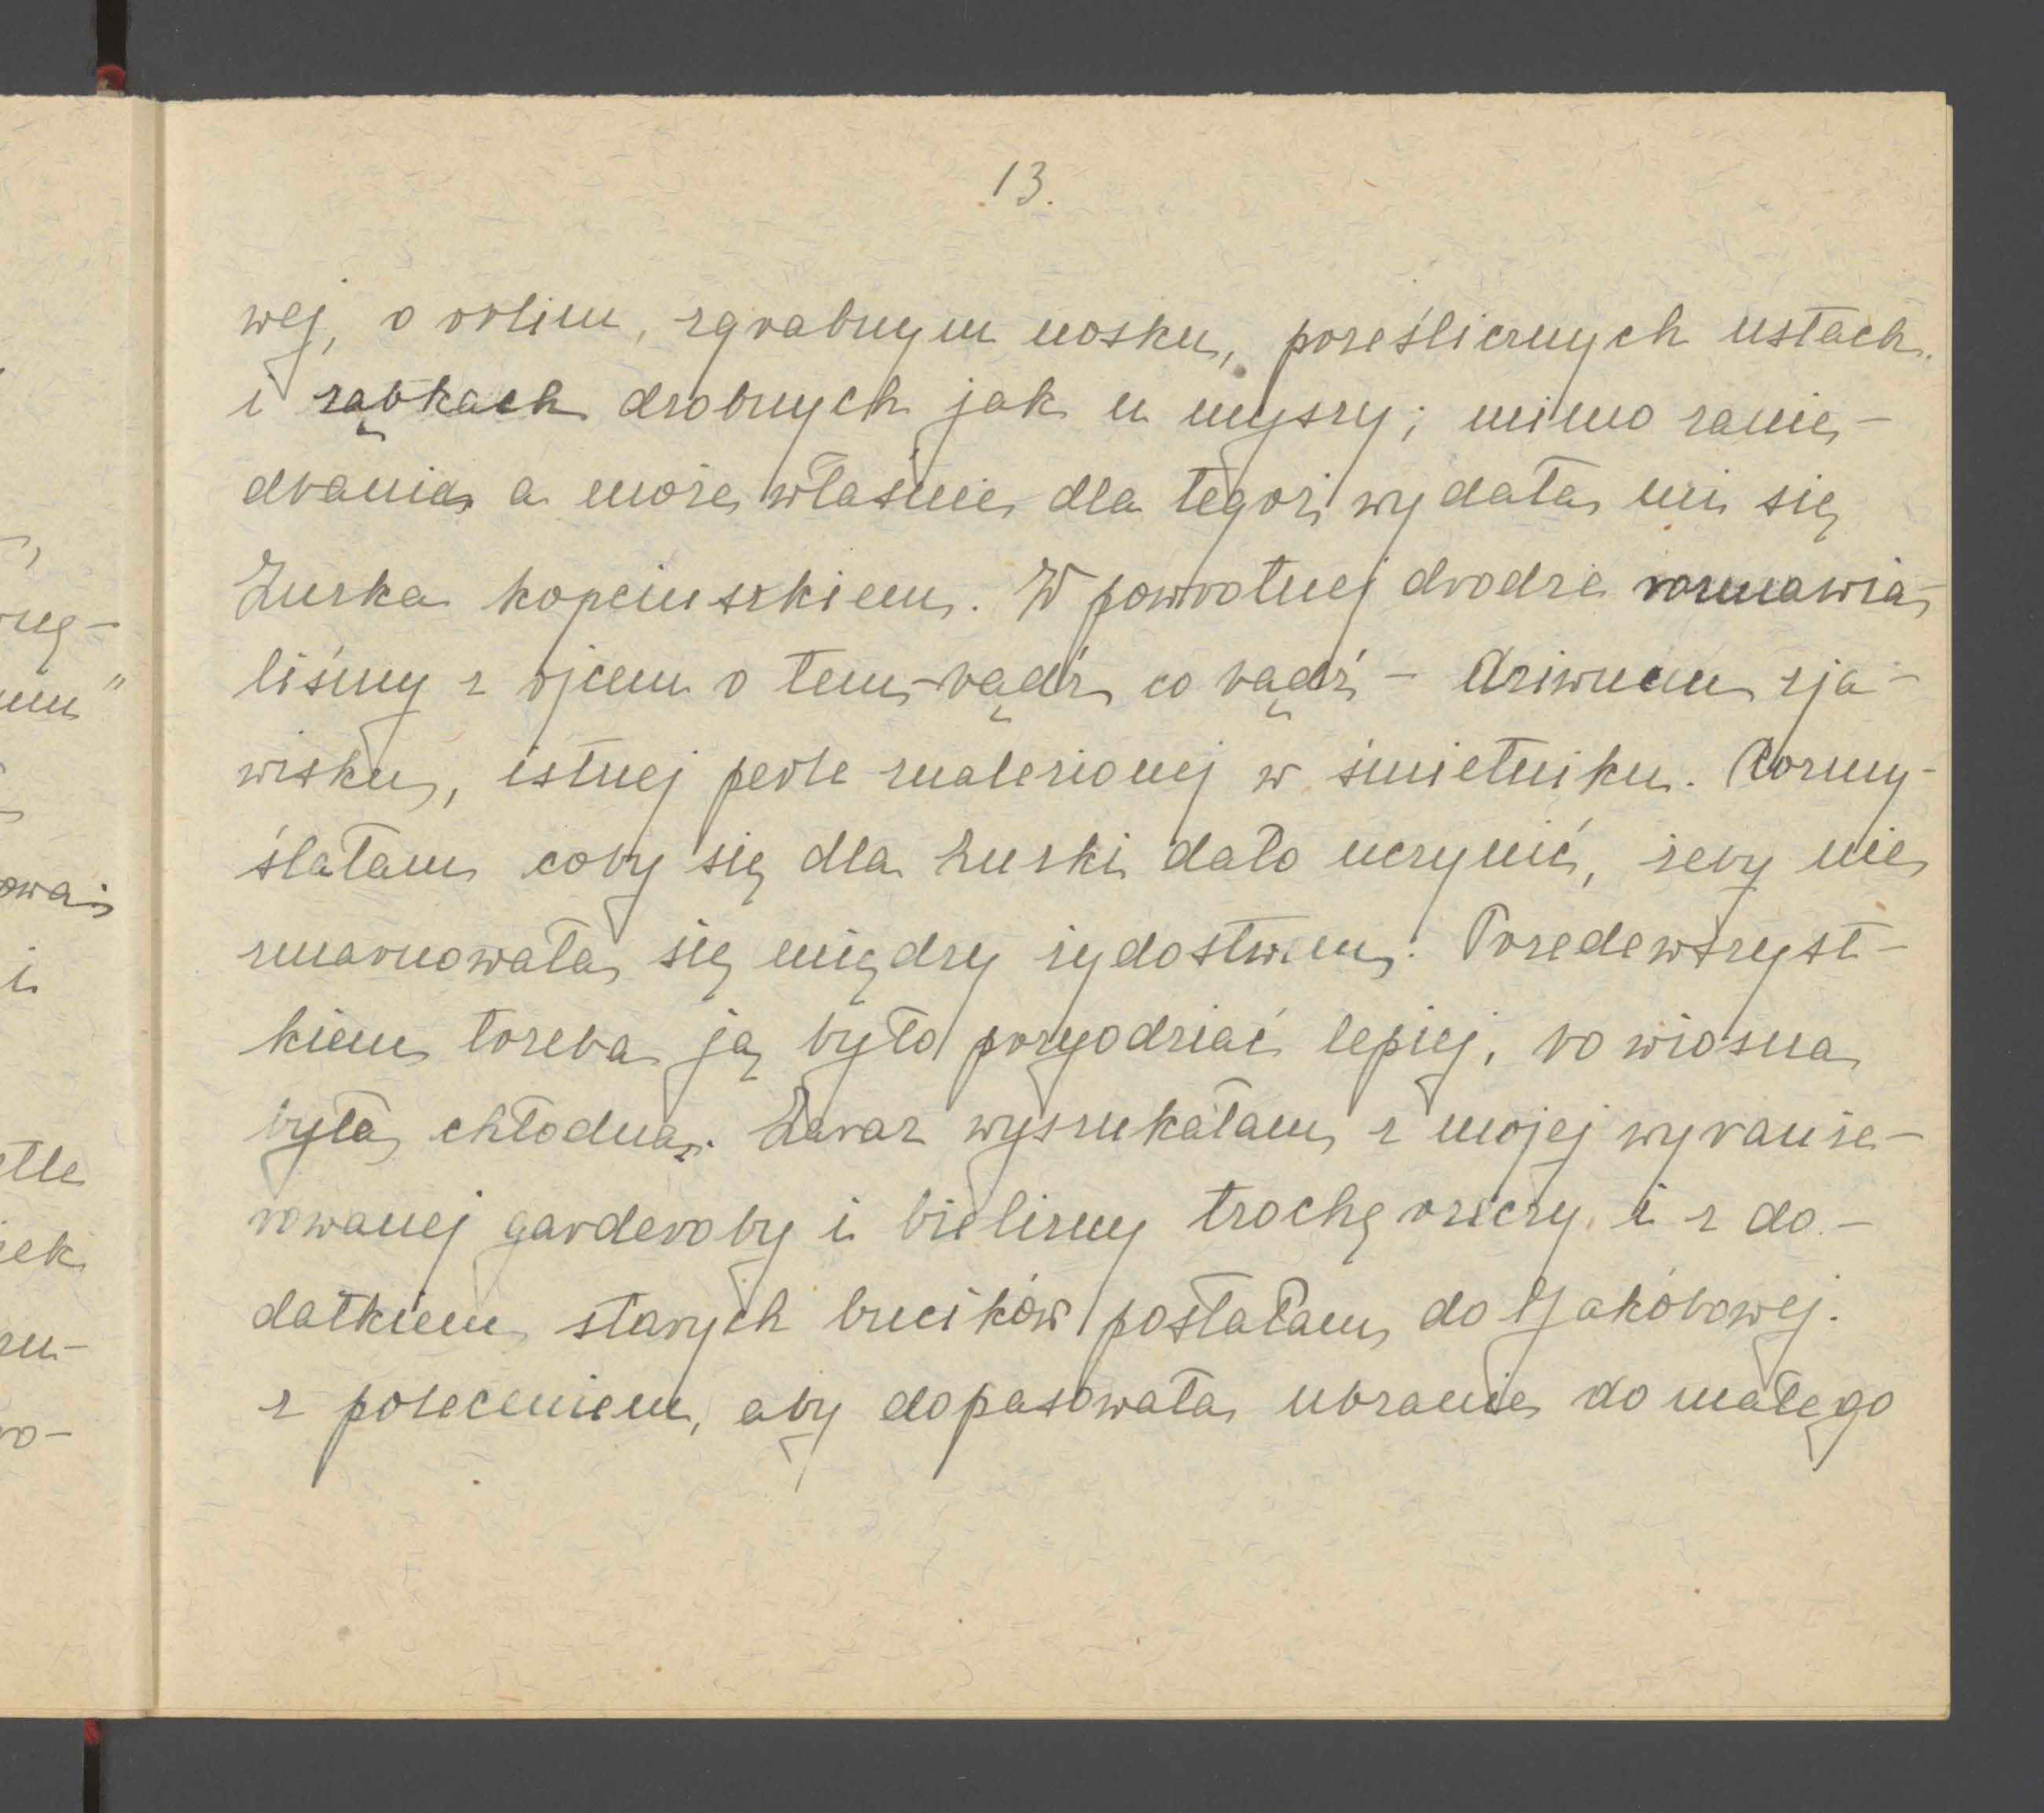 13.
wej, o orlim, zgrabnym nosku, prześlicznych ustach
i ząbkach drobnych jak u myszy; mimo zanie-
dbania a może właśnie dla tegoż wydała mi się
Zuzka kopciuszkiem. W powrotnej drodze rozmawia-
liśmy z ojcem o tem bądź co bądź - dziwnem zja-
wisku, istnej perle znalezionej w śmietniku. Rozmy-
ślałam coby się dla Zuzki dało uczynić, żeby nie
zmarnowała się między żydostwem. Przedewszyst-
kiem trzeba ją było przyodziać lepiej, bo wiosna
była chłodna. Zaraz wyszukałam z mojej wybrasie-
rowanej garderoby i bielizny trochę rzeczy i z do-
datkiem starych bucików posłałam do Jakóbowej.
z poleceniem, aby dopasowała ubranie do małego
ę-
em"
owa
i
tle
zek